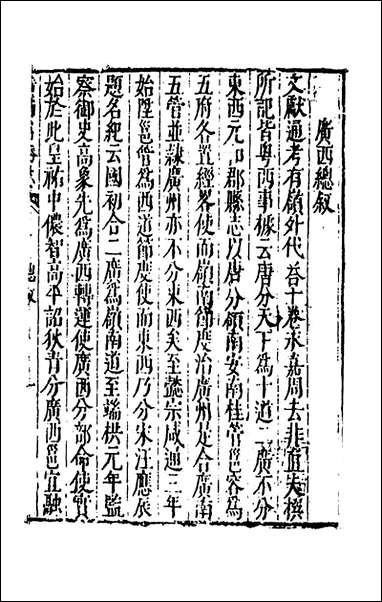 廣西總叙
文獻通考有嶺外代答十卷永嘉周去非直夫撰
所記皆粤西事據云唐分天下爲十道二廣不分
東西元和郡縣志以唐分嶺南安南桂管邕容爲
五府各置經畧使而嶺南節度治廣州是合廣南
五管並隷廣州亦不分東西矣至懿宗咸通三年
始陞邕管爲西道節度使而東西乃分宋汪應辰
題名紀云國初合二廣爲嶺南道至端拱元年監
察御史高象先爲廣西轉運使廣西分部命使實
始於此皇祐中儂智高平詔狄青分廣西邕宜融